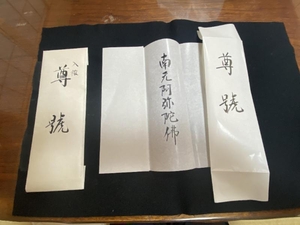 尊號
南无阿弥陀佛
尊號